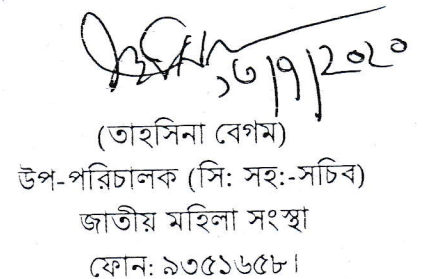 ১৩/৭/২০২০
(তাহসিনা বেগম)
উপ-পরিচালক (সি: সহ:-সচিব)
জাতীয় মহিলা সংস্থা
ফোন: ৯৩৫১৬৫৮।